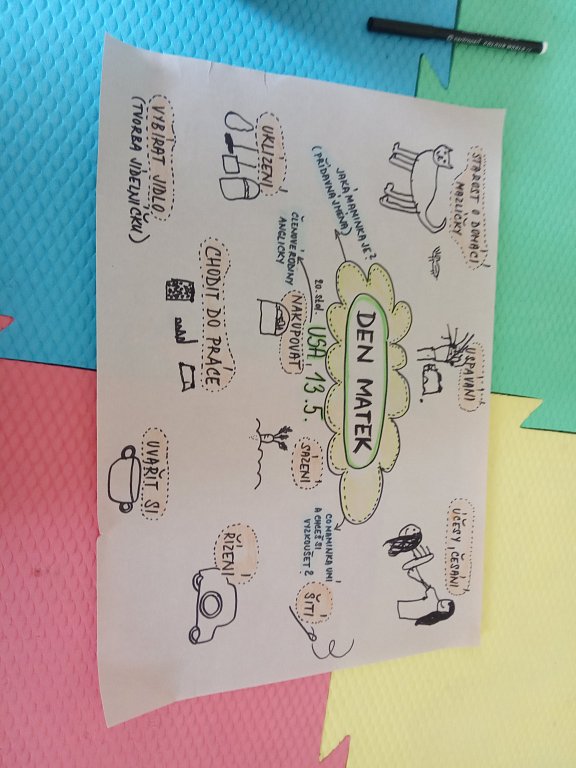 DEN MATEK
USA 13.5.
20. stol.
JAKÁ MAMINKA JE?
(PŘÍDAVNÁ JMÉNA)
ČLENOVÉ RODINY
ANGLICKY
CO MAMINKA UMÍ
A CHCEŠ SI
VYZKOUŠET?
STAROST O DOMÁCÍ
MAZLÍČKY
USPÁVÁNÍ
ÚČESY, ČESÁNÍ
UKLÍZENÍ
NAKUPOVAT
SÁZENÍ
ŠITÍ
VYBÍRAT JÍDLO
(TVORBA JÍDELNÍČKU)
CHODIT DO PRÁCE
UVAŘIT SI
ŘÍZENÍ